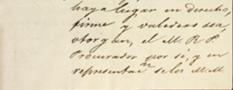 haya lugar en derecho,
firme y valedera sea,
otorgan, el M. R. P.
Procurador por sí, y en
representac.n de los M.M.